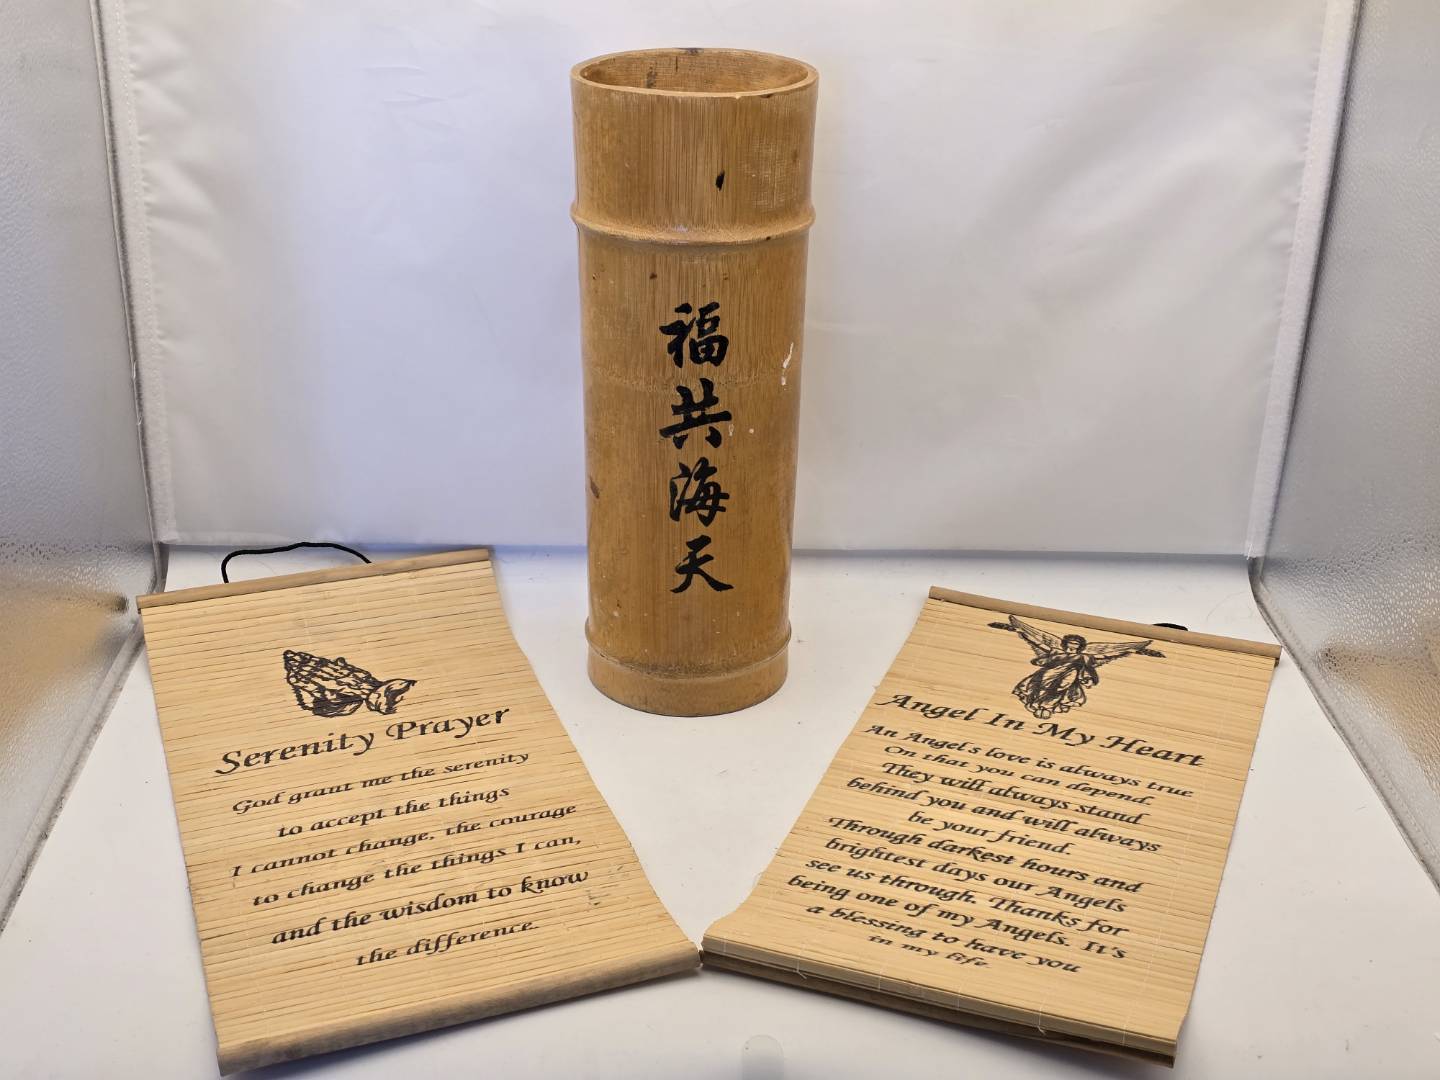 福共海天
Serenity Prayer
God grant me the serenity
to accept the things
I cannot change, the courage
to change the things I can,
and the wisdom to know
the difference.
Angel In My Heart
An Angel's love is always true
On that you can depend.
They will always stand
behind you and will always
be your friend.
Through darkest hours and
brightest days our Angels
see us through. Thanks for
being one of my Angels. It's
a blessing to have you
in my life.